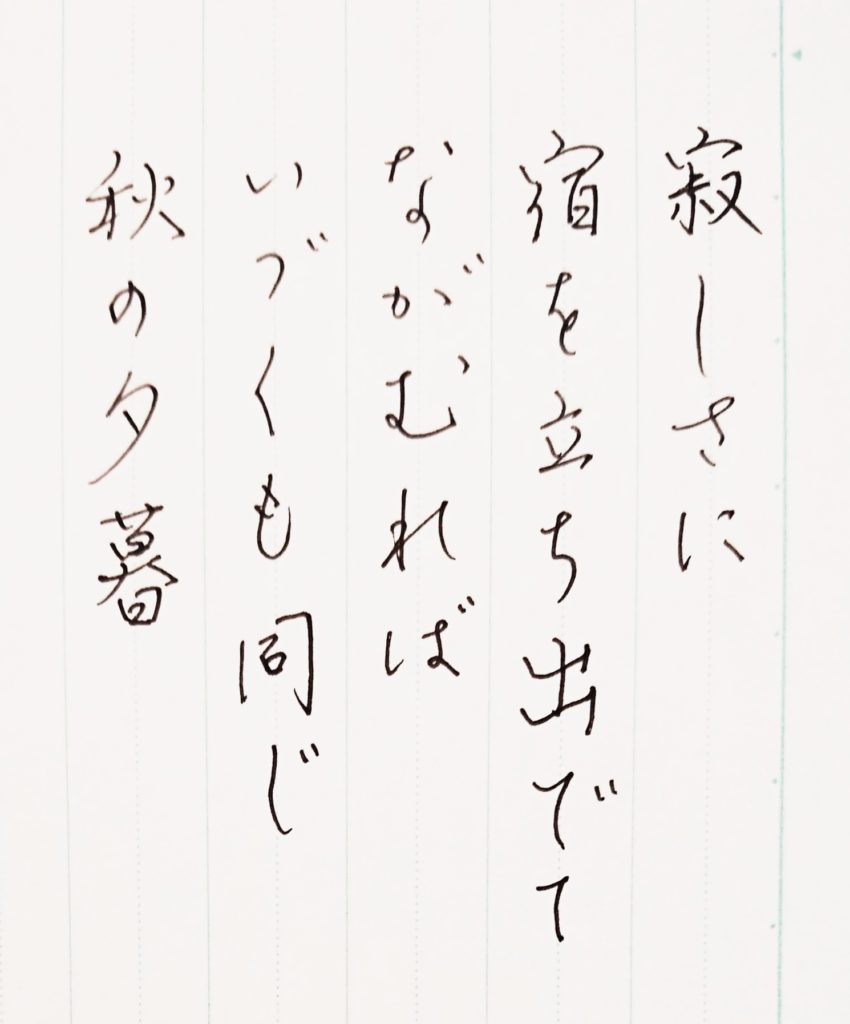 寂しさに
宿を立ち出でて
ながむれば
いづくも同じ
秋の夕暮